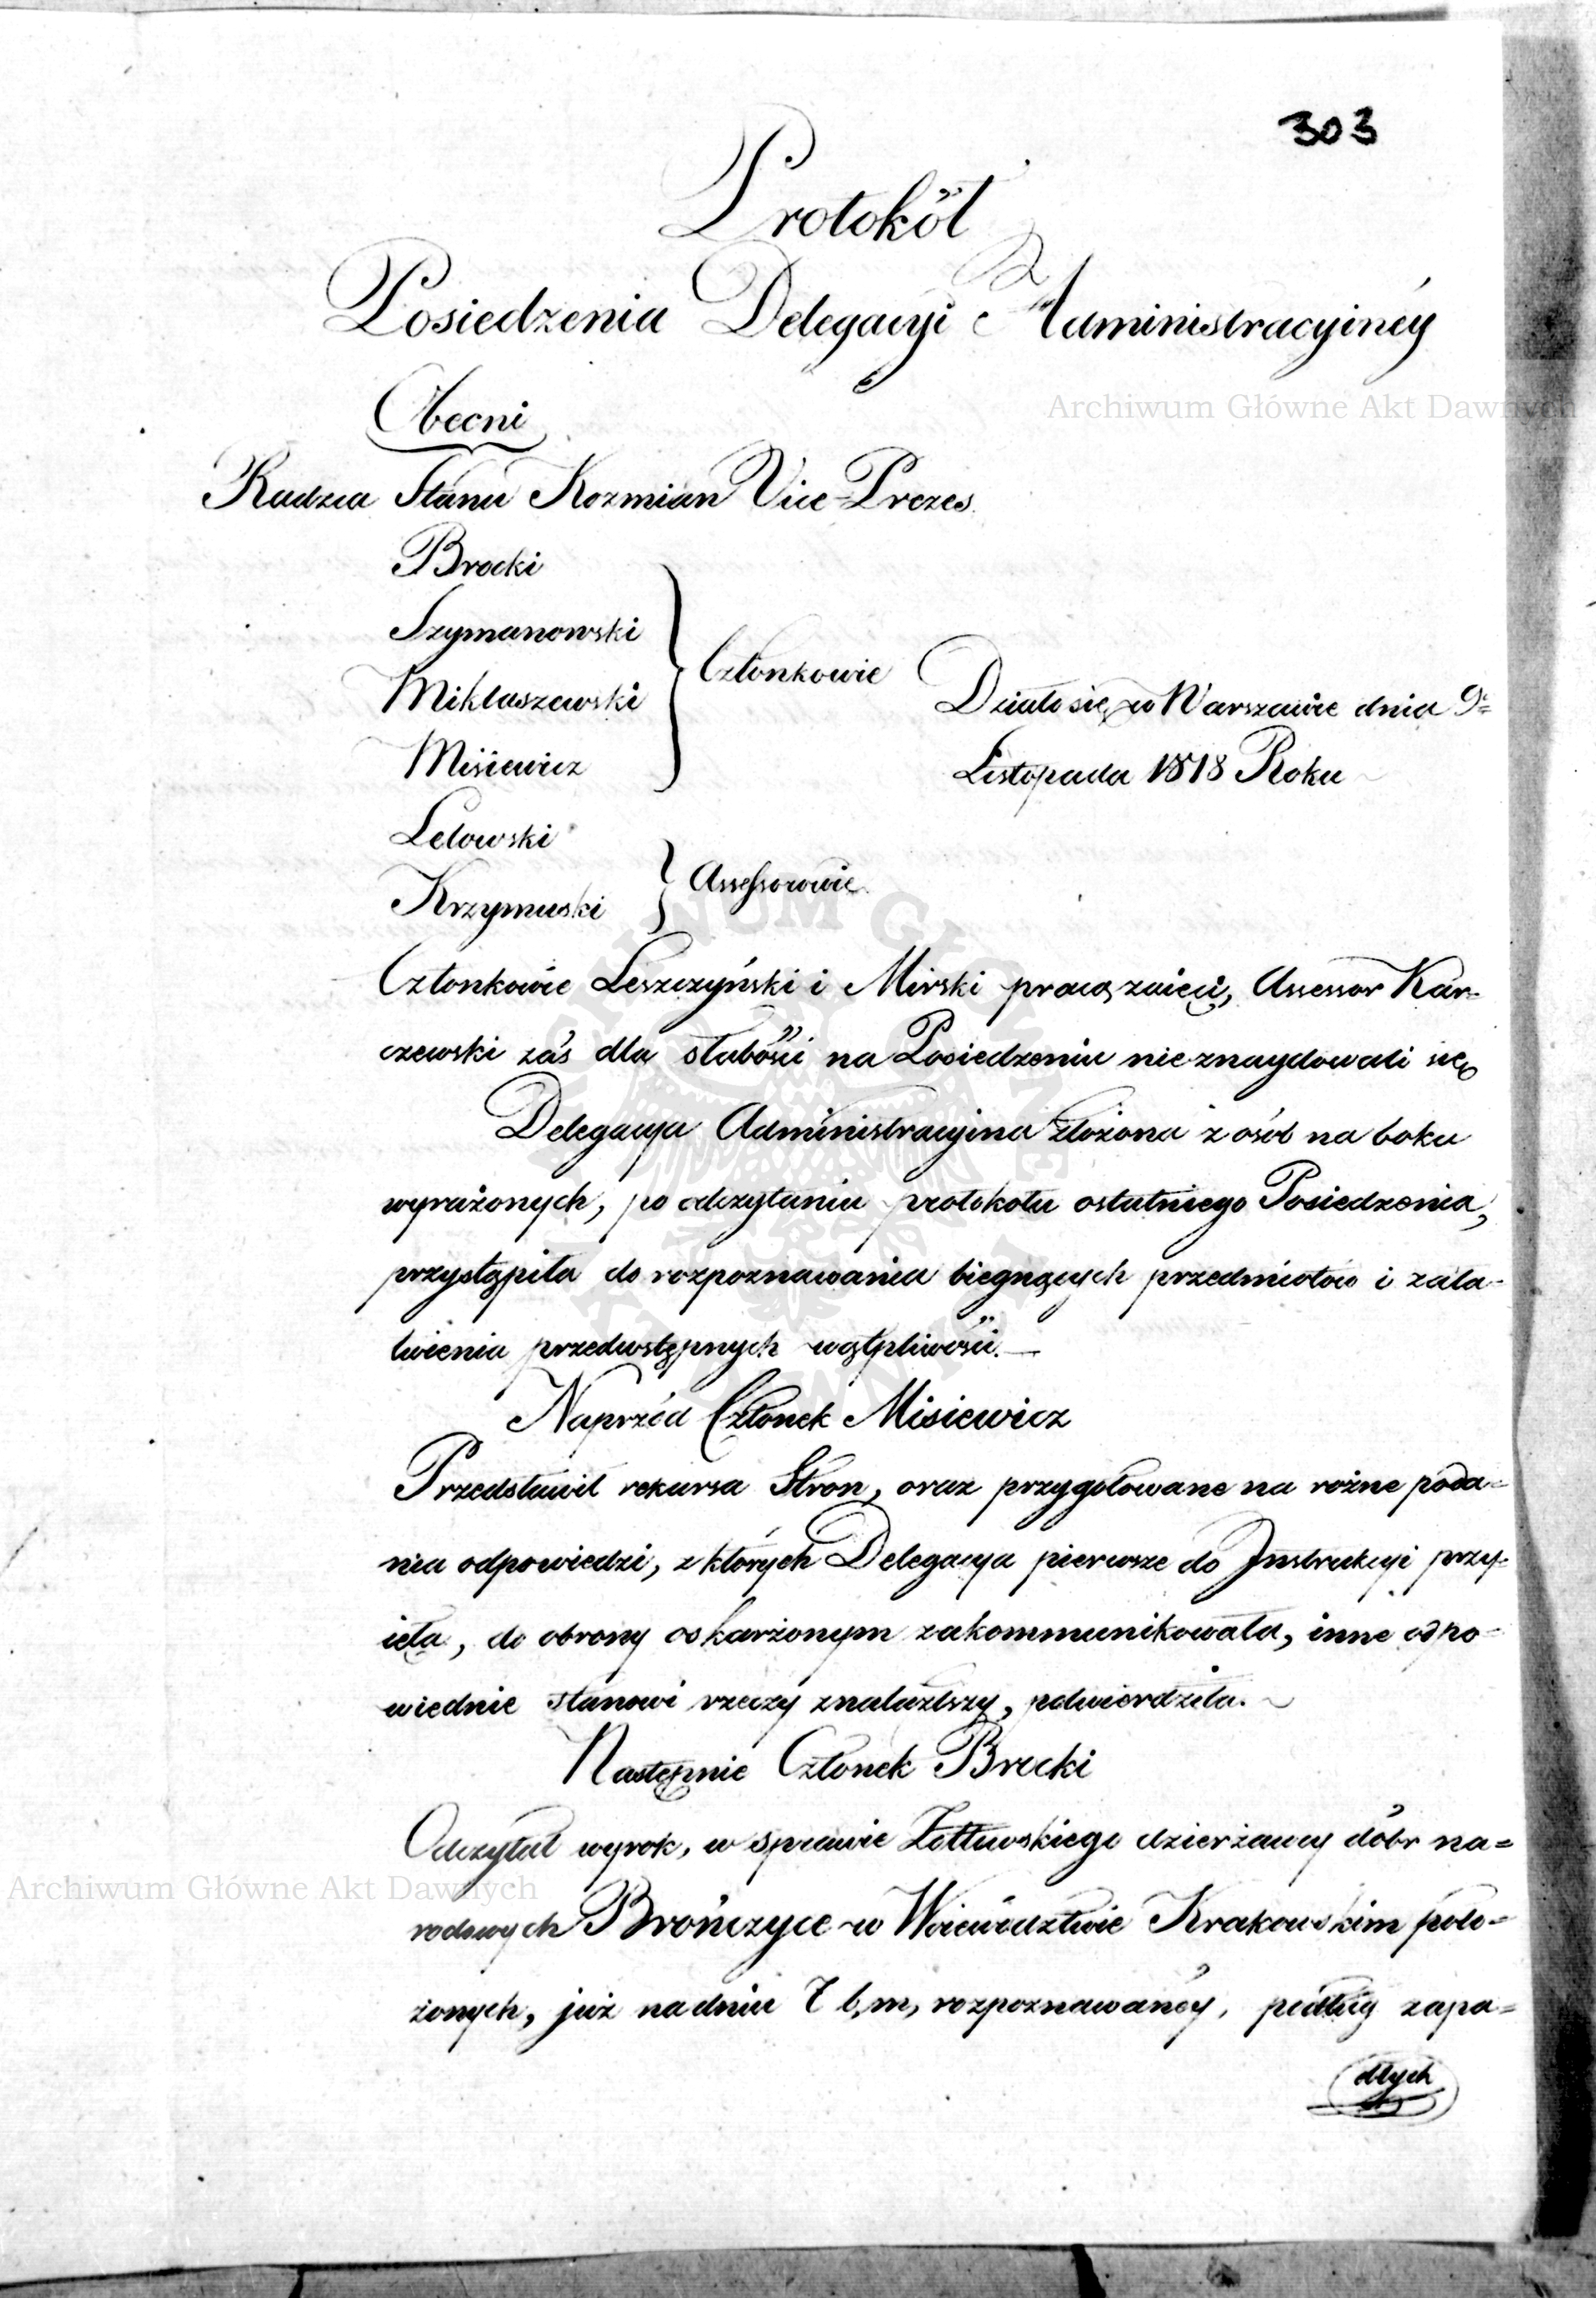 303
Protokół
Posiedzenia Delegacyi Administracyiney
Obecni
Radzca Stanu Kozmian Vice-Prezes
Brocki
Szymanowski
Miklaszewski
Misiewicz
Członkowie
Działo się w Warszawie dnia 9=
Listopada 1818 Roku
Lelowski
Krzymuski
Assessorowie
Członkowie Leszczyński i Mirski pracą zaięci, Assessor Kar-
czewski zaś dla słabości na Posiedzeniu nieznaydowali się
Delegacya Administracyina złożona z osób na boku
wyrażonych, po odczytaniu protokołu ostatniego Posiedzenia,
przystąpiła do rozpoznawania biegnących przedmiotow i zała-
twienia przedwstępnych wątpliwości.—
Naprzód Członek Misiewicz
Przedstawił rekursa Stron, oraz przygotowane na rożne poda-
nia odpowiedzi, z których Delegacya pierwsze do Instrukcyi przy-
ięła, do obrony oskarżonym zakommunikowała, inne odpo-
wiednie stanowi rzeczy znalazłszy, potwierdziła.
Następnie Członek Brocki
Odczytał wyrok, w sprawie Żołtowskiego dzierżawcy dóbr na=
rodowych Brończyce w Woiewództwie Krakowskim poło-
żonych, już na dniu 7 b, m, rozpoznawanéy, podług zapa=
dłych
Archiwum Główne Akt Dawnych
Archiwum Główne Akt Dawnych
ARCHIWUM GŁÓWNE AKT DAWNYCH